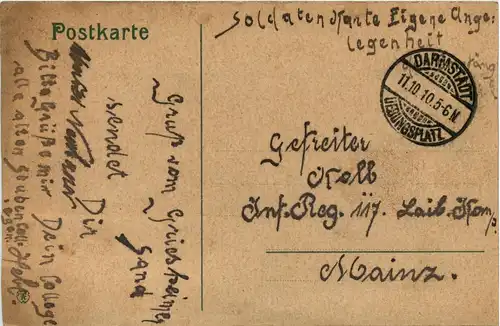 Postkarte
Soldaten Karte Eigene Ange-
legenheit
DARMSTADT
11.10.10.5-6N.
UEBUNGSPLATZ
Gefreiter
Kolb
Inf. Reg. 117. Laib. Komp.
Mainz.
Gruß vom Griesheimer
Sand
sendet Dir
Bitte Grüße mir Dein College
alle alten Stuben Coll.